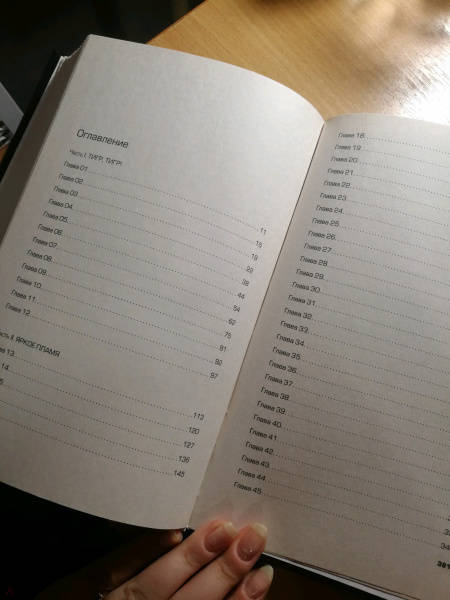 Оглавление
Часть I. ТИГР, ТИГР!
Глава 01 11
Глава 02 15
Глава 03 19
Глава 04
Глава 05 38
Глава 06 44
Глава 07 54
Глава 08 62
Глава 09 75
Глава 10 81
Глава 11 92
Глава 12 97
II. ЯРКОЕ ПЛАМЯ
13 113
14 120
5 127
136
145
Глава 18
Глава 19
Глава 20
Глава 21
Глава 22
Глава 23
Глава 24
Глава 25
Глава 26
Глава 27
Глава 28
Глава 29
Глава 30
Глава 31
Глава 32
Глава 33
Глава 34
Глава 35
Глава 36
Глава 37
Глава 38
Глава 39
Глава 40
Глава 41
Глава 42
Глава 43
Глава 44
Глава 45 34
381